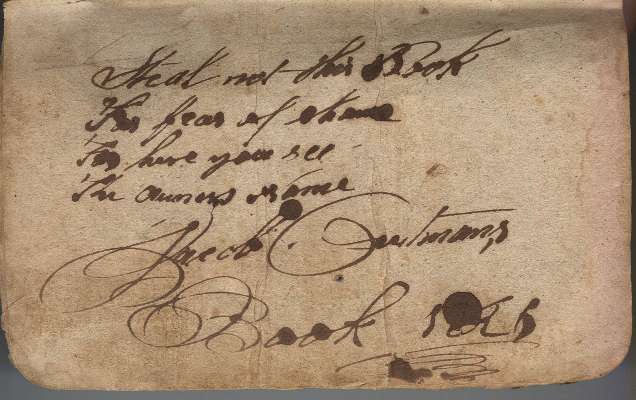 Steal not this Book
For fear of shame
For here you see
The owners Name
Jacob
Book